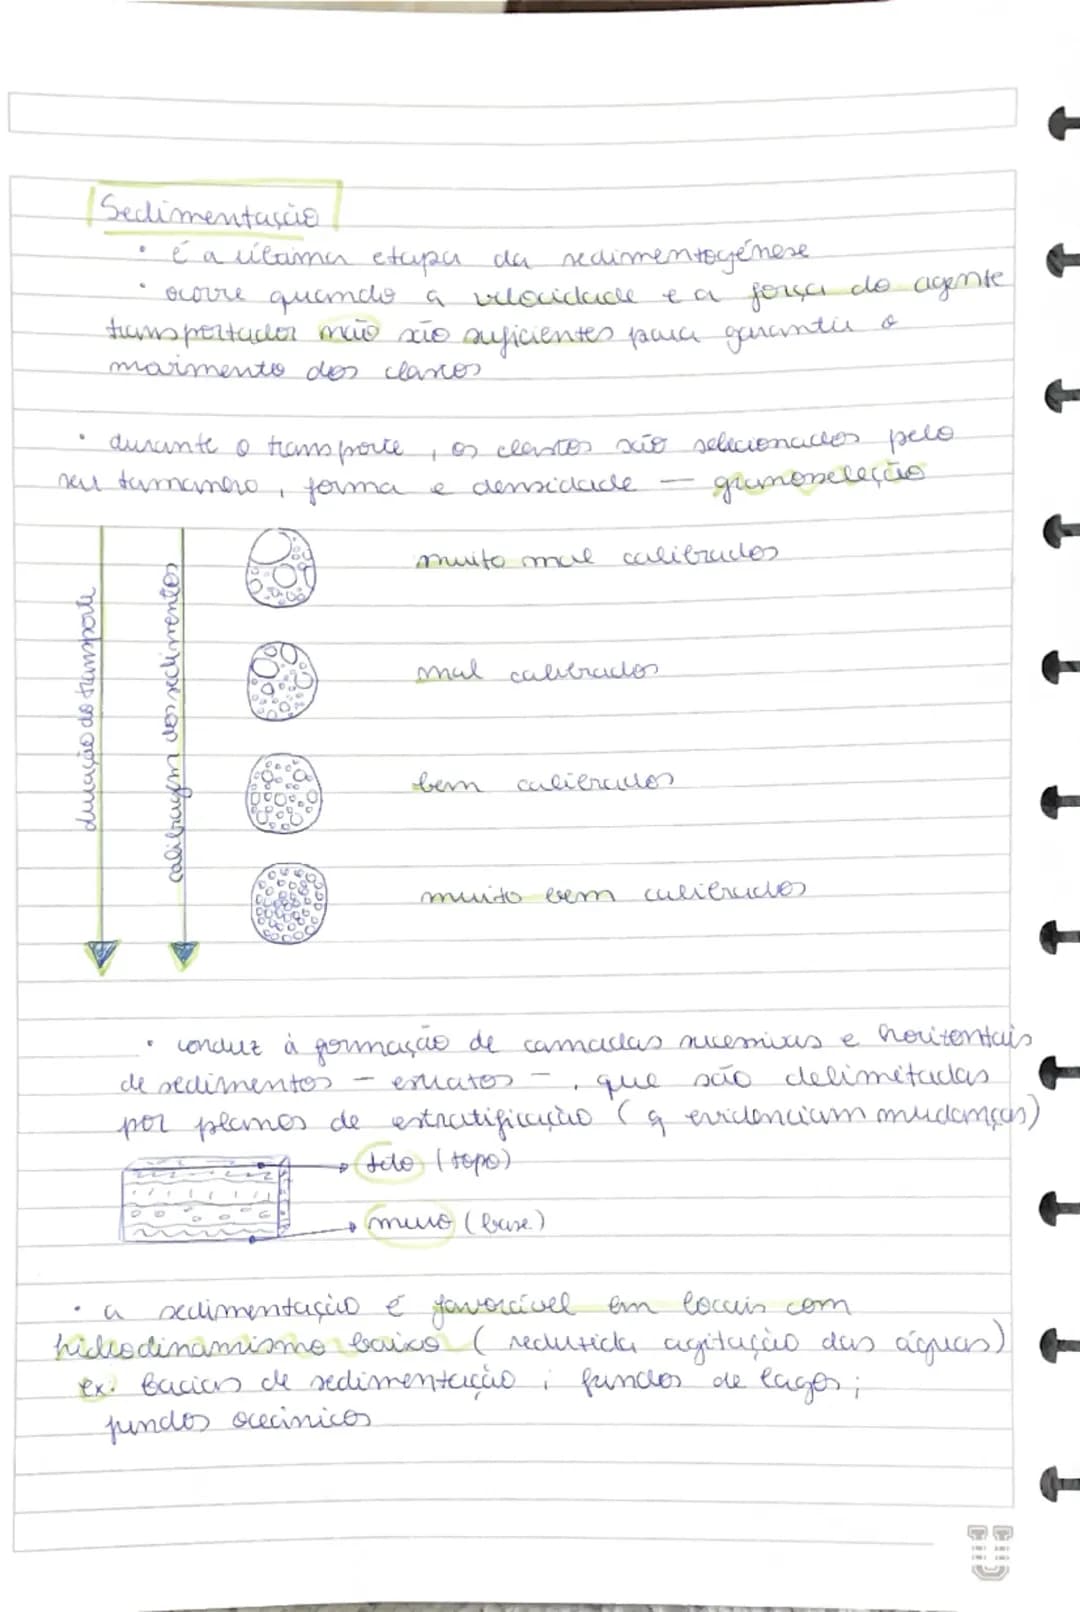 Sedimentação
• é a última etapa da sedimentogénese
• ocorre quando a velocidade e a força do agente
transportador não são suficientes para garantir o
movimento dos clastos
• durante o transporte, os clastos são selecionados pelo
seu tamanho, forma e densidade — granosseleção
duração do transporte
calibragem dos sedimentos
muito mal calibrados
mal calibrados
bem calibrados
muito bem calibrados
• conduz à formação de camadas sucessivas e horizontais
de sedimentos - estratos -, que são delimitadas
por planos de estratificação (q evidenciam mudanças)
teto (topo)
muro (base)
• a sedimentação é favorável em locais com
hidrodinamismo baixo (reduzida agitação das águas)
ex: bacias de sedimentação; fundos de lagos;
fundos oceânicos
U